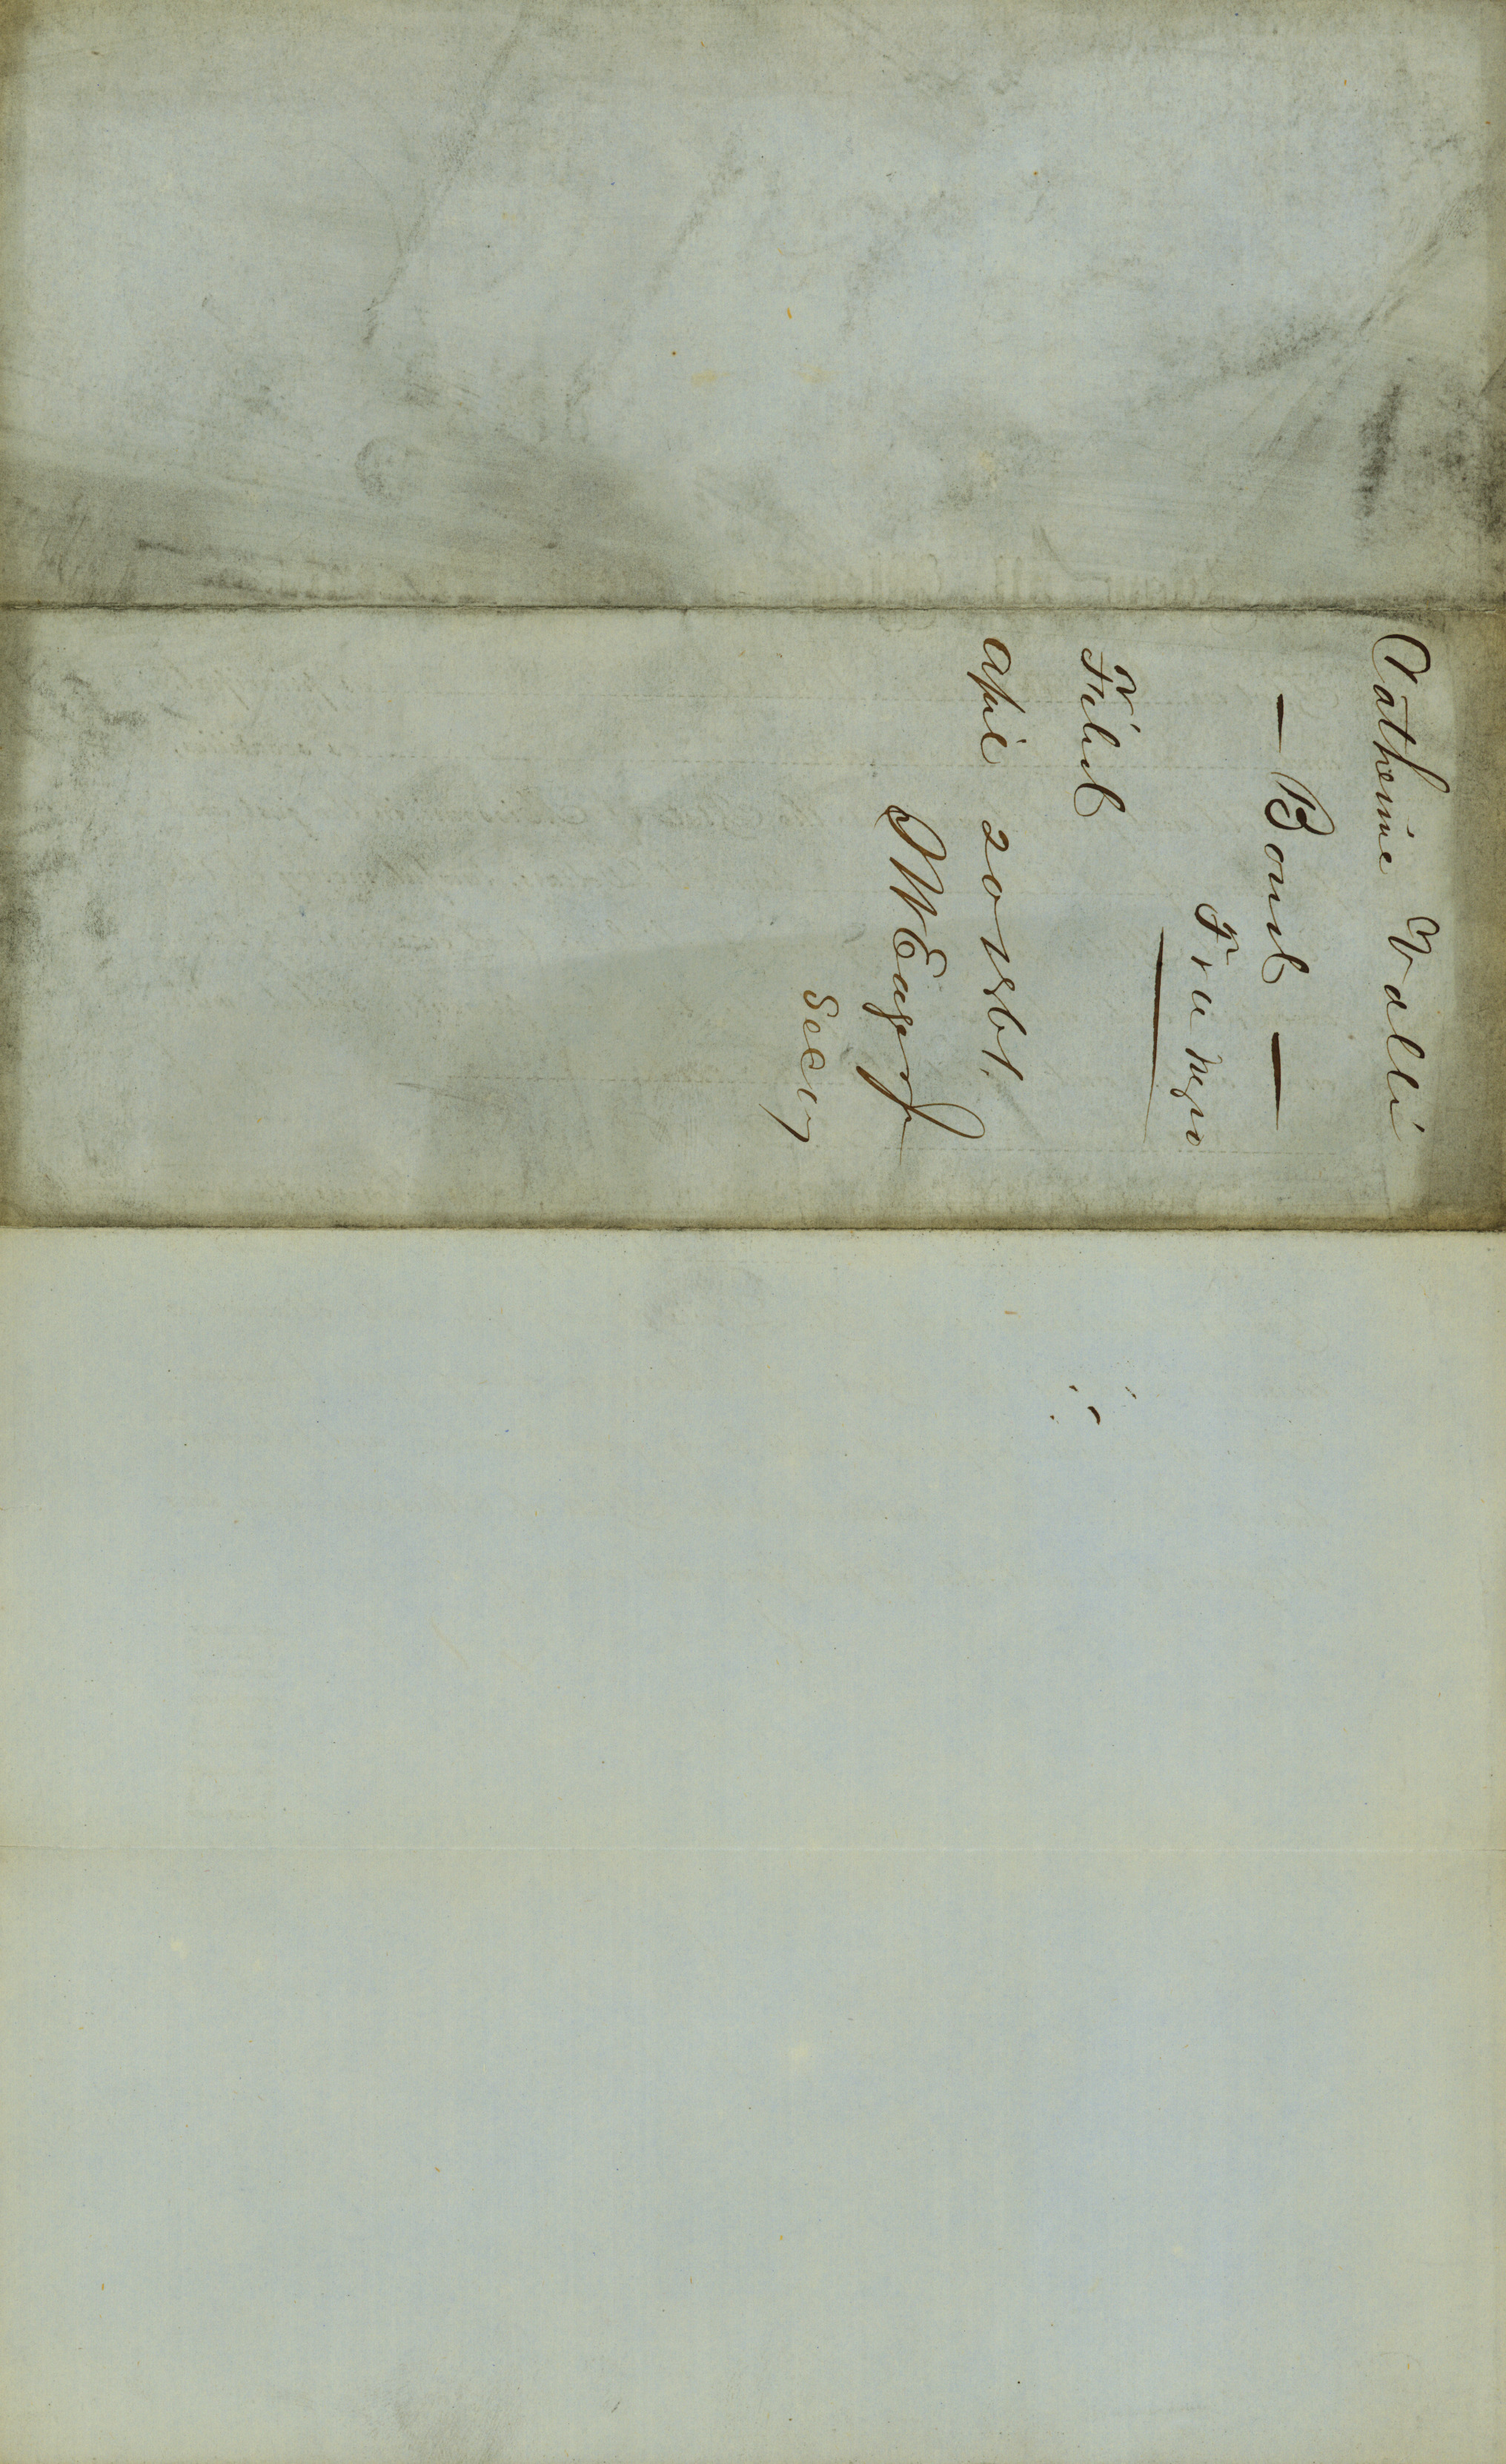 Catherine Vallé
— Bond —
Fre Negro
Filed
April 20 1861.
Secty